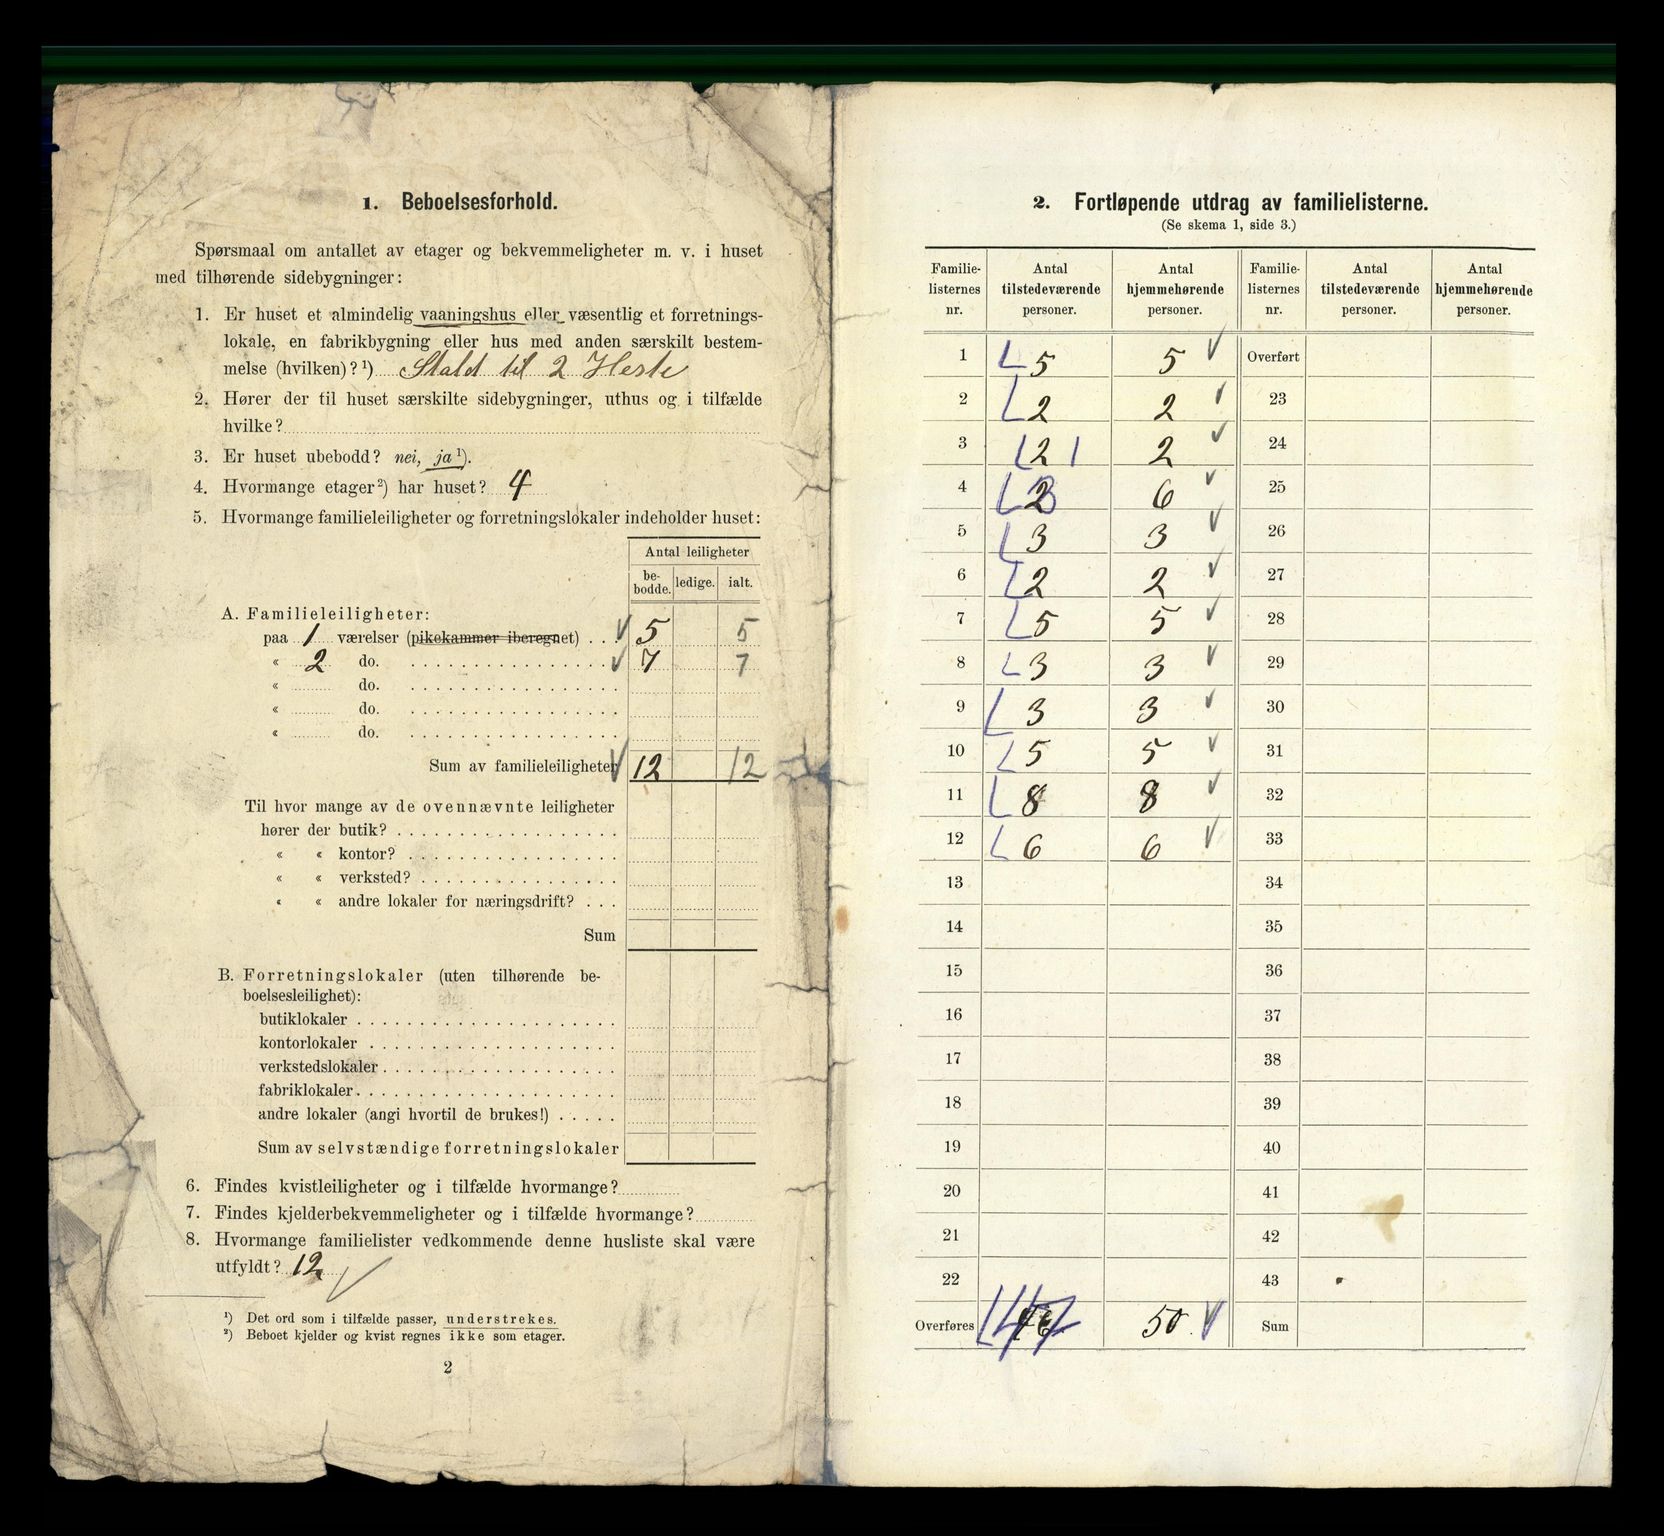 1. Beboelsesforhold.
Spørsmaal om antallet av etager og bekvemmeligheter m. v. i huset
med tilhørende sidebygninger:
1. Er huset et almindelig vaaningshus eller væsentlig et forretnings-
lokale, en fabrikbygning eller hus med anden særskilt bestem-
melse (hvilken)? ¹) Stald til 2 Heste
2. Hører der til huset særskilte sidebygninger, uthus og i tilfælde
hvilke?
3. Er huset ubebodd? nei, ja ¹).
4. Hvormange etager ²) har huset? 4
5. Hvormange familieleiligheter og forretningslokaler indeholder huset:
Antal leiligheter
be-
bodde. ledige. ialt.
A. Familieleiligheter:
paa 1 værelser (pikekammer iberegnet) . . . 5 5
« 2 do. 7 7
« do.
« do.
« do.
Sum av familieleiligheter 12 12
Til hvor mange av de ovennævnte leiligheter
hører der butik?
« « kontor?
« « verksted?
« « andre lokaler for næringsdrift? . . .
Sum
B. Forretningslokaler (uten tilhørende be-
boelsesleilighet):
butiklokaler
kontorlokaler
verkstedslokaler
fabriklokaler
andre lokaler (angi hvortil de brukes!)
Sum av selvstændige forretningslokaler
6. Findes kvistleiligheter og i tilfælde hvormange?
7. Findes kjelderbekvemmeligheter og i tilfælde hvormange?
8. Hvormange familielister vedkommende denne husliste skal være
utfyldt? 12
¹) Det ord som i tilfælde passer, understrekes.
²) Beboet kjelder og kvist regnes ikke som etager.
2
2. Fortløpende utdrag av familielisterne.
(Se skema 1, side 3.)
Familie-
listernes
nr. Antal
tilstedeværende
personer. Antal
hjemmehørende
personer. Familie-
listernes
nr. Antal
tilstedeværende
personer. Antal
hjemmehørende
personer.
1 5 5 Overført
2 2 2 23
3 2 1 2 24
4 6 25
5 3 3 26
6 2 2 27
7 5 5 28
8 3 3 29
9 3 3 30
10 5 5 31
11 8 8 32
12 6 6 33
13 34
14 35
15 36
16 37
17 38
18 39
19 40
20 41
21 42
22 43
Overføres 47 50 Sum